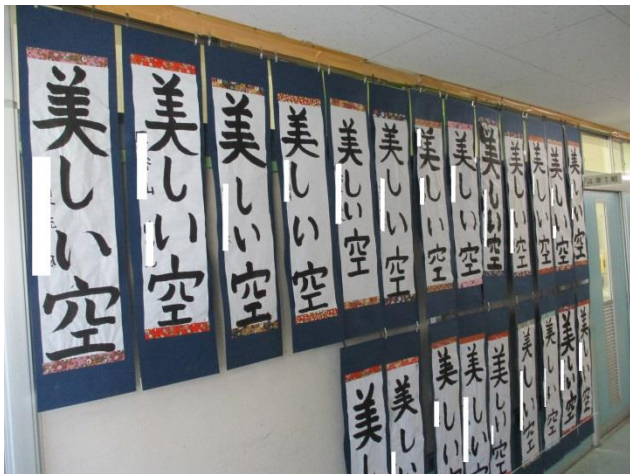 美しい空
美しい空
美しい空
美しい空
美しい空
美しい空
美しい空
美しい空
美しい空
美しい空
美しい空
美しい空
美しい空
美しい
美しい
美しい空
美しい空
美しい空
美しい空
美しい空
美しい空
美しい空